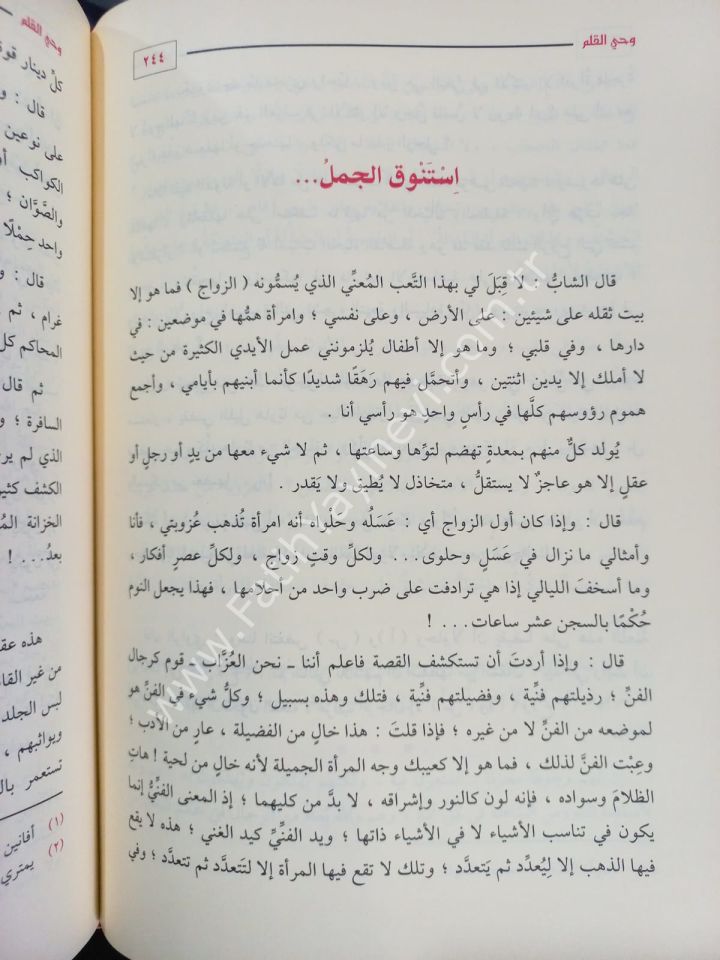 وحي القلم
٢٤٤
اِسْتَنْوَق الجملُ...
قال الشابُّ : لا قِبَلَ لي بهذا التَّعب المُعنِّي الذي يُسمُّونه ( الزواج ) فما هو إلا
بيت ثقله على شيئين : على الأرض ، وعلى نفسي ؛ وامرأة همُّها في موضعين : في
دارها ، وفي قلبي ؛ وما هو إلا أطفال يُلزمونني عمل الأيدي الكثيرة من حيث
لا أملك إلا يدين اثنتين ، وأتحمَّل فيهم رَهَقًا شديدًا كأنما أبنيهم بأيامي ، وأجمع
هموم رؤوسهم كلَّها في رأسٍ واحدٍ هو رأسي أنا .
يُولد كلٌّ منهم بمعدةٍ تهضم لتوِّها وساعتها ، ثم لا شيء معها من يدٍ أو رجلٍ أو
عقلٍ إلا هو عاجزٌ لا يستقلُّ ، متخاذل لا يُطيق ولا يَقدر .
قال : وإذا كان أول الزواج أي : عَسَلُه وحَلْواه أنه امرأة تُذهب عُزوبتي ، فأنا
وأمثالي ما نزال في عَسَلٍ وحلوى... ولكلِّ وقتٍ زواج ، ولكلِّ عصرٍ أفكار ،
وما أسخفَ الليالي إذا هي ترادفت على ضرب واحد من أحلامها ، فهذا يجعل النوم
حُكْمًا بالسجن عشر ساعات. . . !
قال : وإذا أردتَ أن تستكشف القصة فاعلم أننا ـ نحن العُزَّاب ـ قوم كرجال
الفنِّ ؛ رذيلتهم فنِّية ، وفضيلتهم فنِّية ، فتلك وهذه بسبيل ؛ وكلُّ شيء في الفنِّ هو
لموضعه من الفنِّ لا من غيره ؛ فإذا قلتَ : هذا خالٍ من الفضيلة ، عارٍ من الأدب ؛
وعِبْت الفنَّ لذلك ، فما هو إلا كعيبك وجه المرأة الجميلة لأنه خالٍ من لحية ! هاتِ
الظلامَ وسواده ، فإنه لون كالنور وإشراقه ، لا بدَّ من كليهما ؛ إذ المعنى الفنِّيُّ إنما
يكون في تناسب الأشياء لا في الأشياء ذاتها ؛ ويد الفنِّيِّ كيد الغني ؛ هذه لا يقع
فيها الذهب إلا لِيُعدِّد ثم يَتعدَّد ؛ وتلك لا تقع فيها المرأة إلا لتَتعدَّد ثم تتعدَّد ؛ وفي
وحي القلم
كلُّ دينار
قال :
على نوعين
الكواكب
والصَّوَّان ؛
واحد حِمْلًا
قال :
غرام ، ثم
المحاكم
ثم قال
السافرة ؛
الذي لم
الكشف
الخزانة
بعدُ... !
هذه
من غير
لبس الجلد
ويواثبهم ،
تستعمر
(١) أفانين
(٢) يمتري
www.FatihYayinevi.com.tr